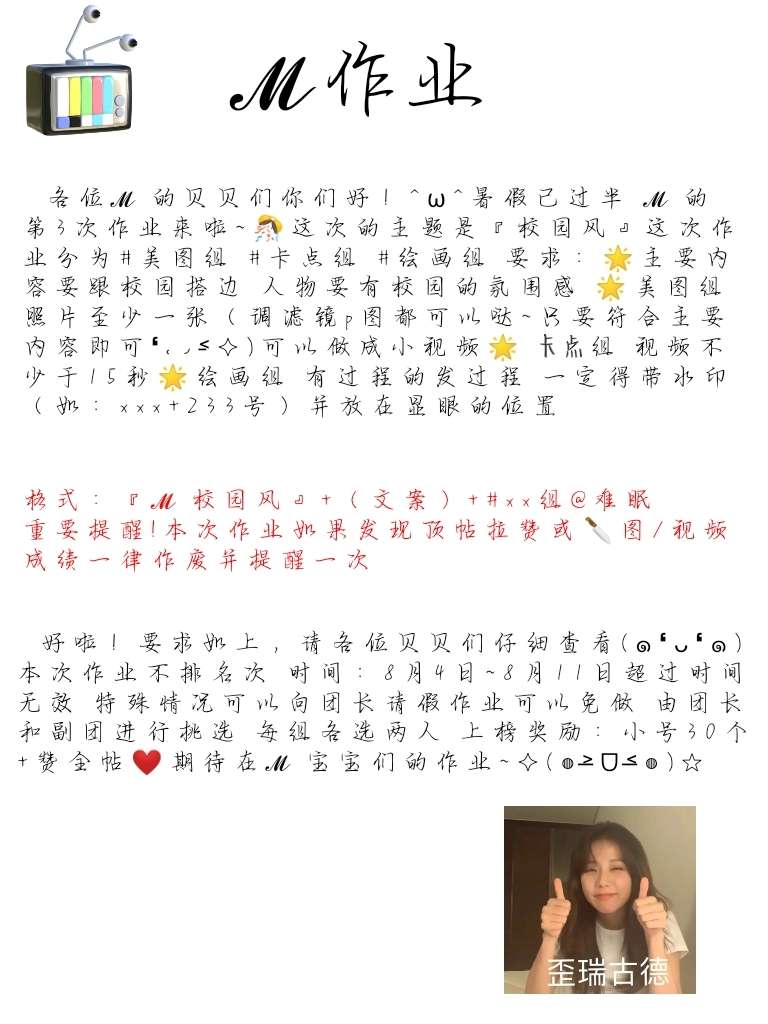 M作业
各位M 的贝贝们你们好！^ω^暑假已过半 M 的
第3次作业来啦~👧这次的主题是『校园风』这次作
业分为#美图组 #卡点组 #绘画组 要求：🌟主要内
容要跟校园搭边 人物要有校园的氛围感 🌟美图组
照片至少一张（调滤镜p图都可以哒~只要符合主要
内容即可❛◟◞≤✧)可以做成小视频🌟 卡点组 视频不
少于15秒🌟绘画组 有过程的发过程 一定得带水印
（如：xxx+233号）并放在显眼的位置
格式：『M 校园风』+（文案）+#xx组@难眠
重要提醒!本次作业如果发现顶帖拉赞或🔪图/视频
成绩一律作废并提醒一次
好啦！要求如上，请各位贝贝们仔细查看(๑❛ᴗ❛๑)
本次作业不排名次 时间：8月4日~8月11日超过时间
无效 特殊情况可以向团长请假作业可以免做 由团长
和副团进行挑选 每组各选两人 上榜奖励：小号30个
+赞全帖❤️期待在M 宝宝们的作业~✧(◍≥ᗜ≤◍)☆
歪瑞古德